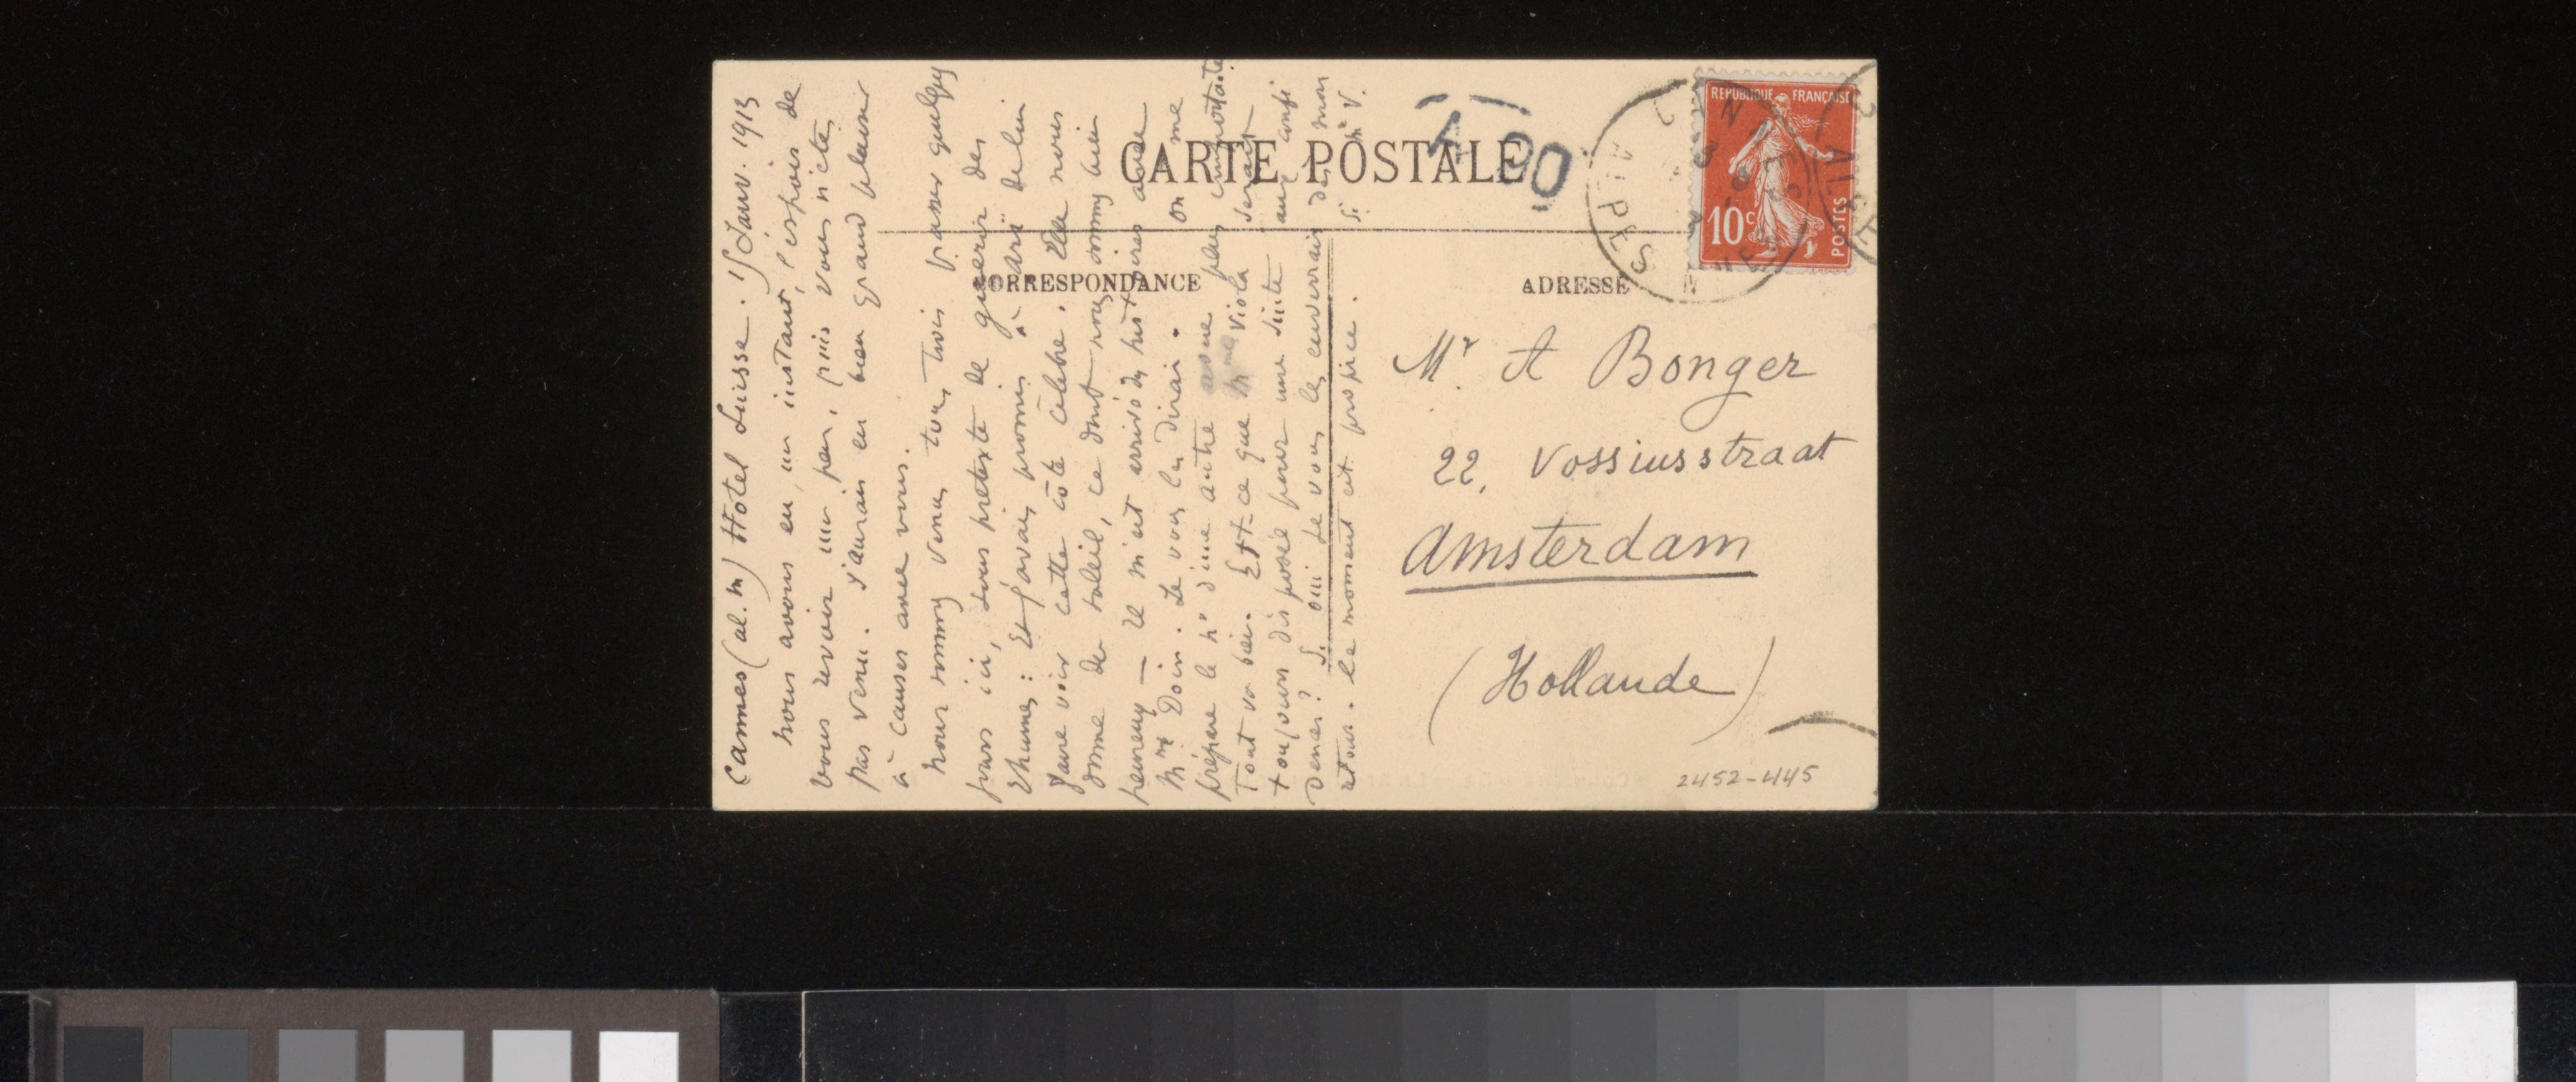 CARTE POSTALE
CORRESPONDANCE
ADRESSE
REPUBLIQUE FRANÇAISE
10c
POSTES
CANNES
ALPES
T 90
Mr. A Bonger
22, Vossiusstraat
Amsterdam
(Hollande)
2452-445
Cannes (al. m) Hôtel Suisse. 15 Janv. 1913
nous avons eu, un instant, l'espoir de
vous revoir un peu, puis vous n'êtes
pas venu. J'aurais eu bien grand plaisir
à causer avec vous.
nous sommes venus tous trois passer quelques
jours ici, sous prétexte de guérir des
rhumes : et j'avais promis à Arï de lui
faire voir cette côte célèbre. Elle nous
donne du soleil, ce dont nous sommes bien
heureux — Il m'est arrivé des histoires avec
Mme Doin. Je vous les dirai. On me
prépare le no d'une autre plus importante.
Tout va bien. Est-ce que Mme Viola serait
toujours disposée pour une suite aux
Dences? Si oui je vous les enverrai dès mon
retour. le moment est propice.